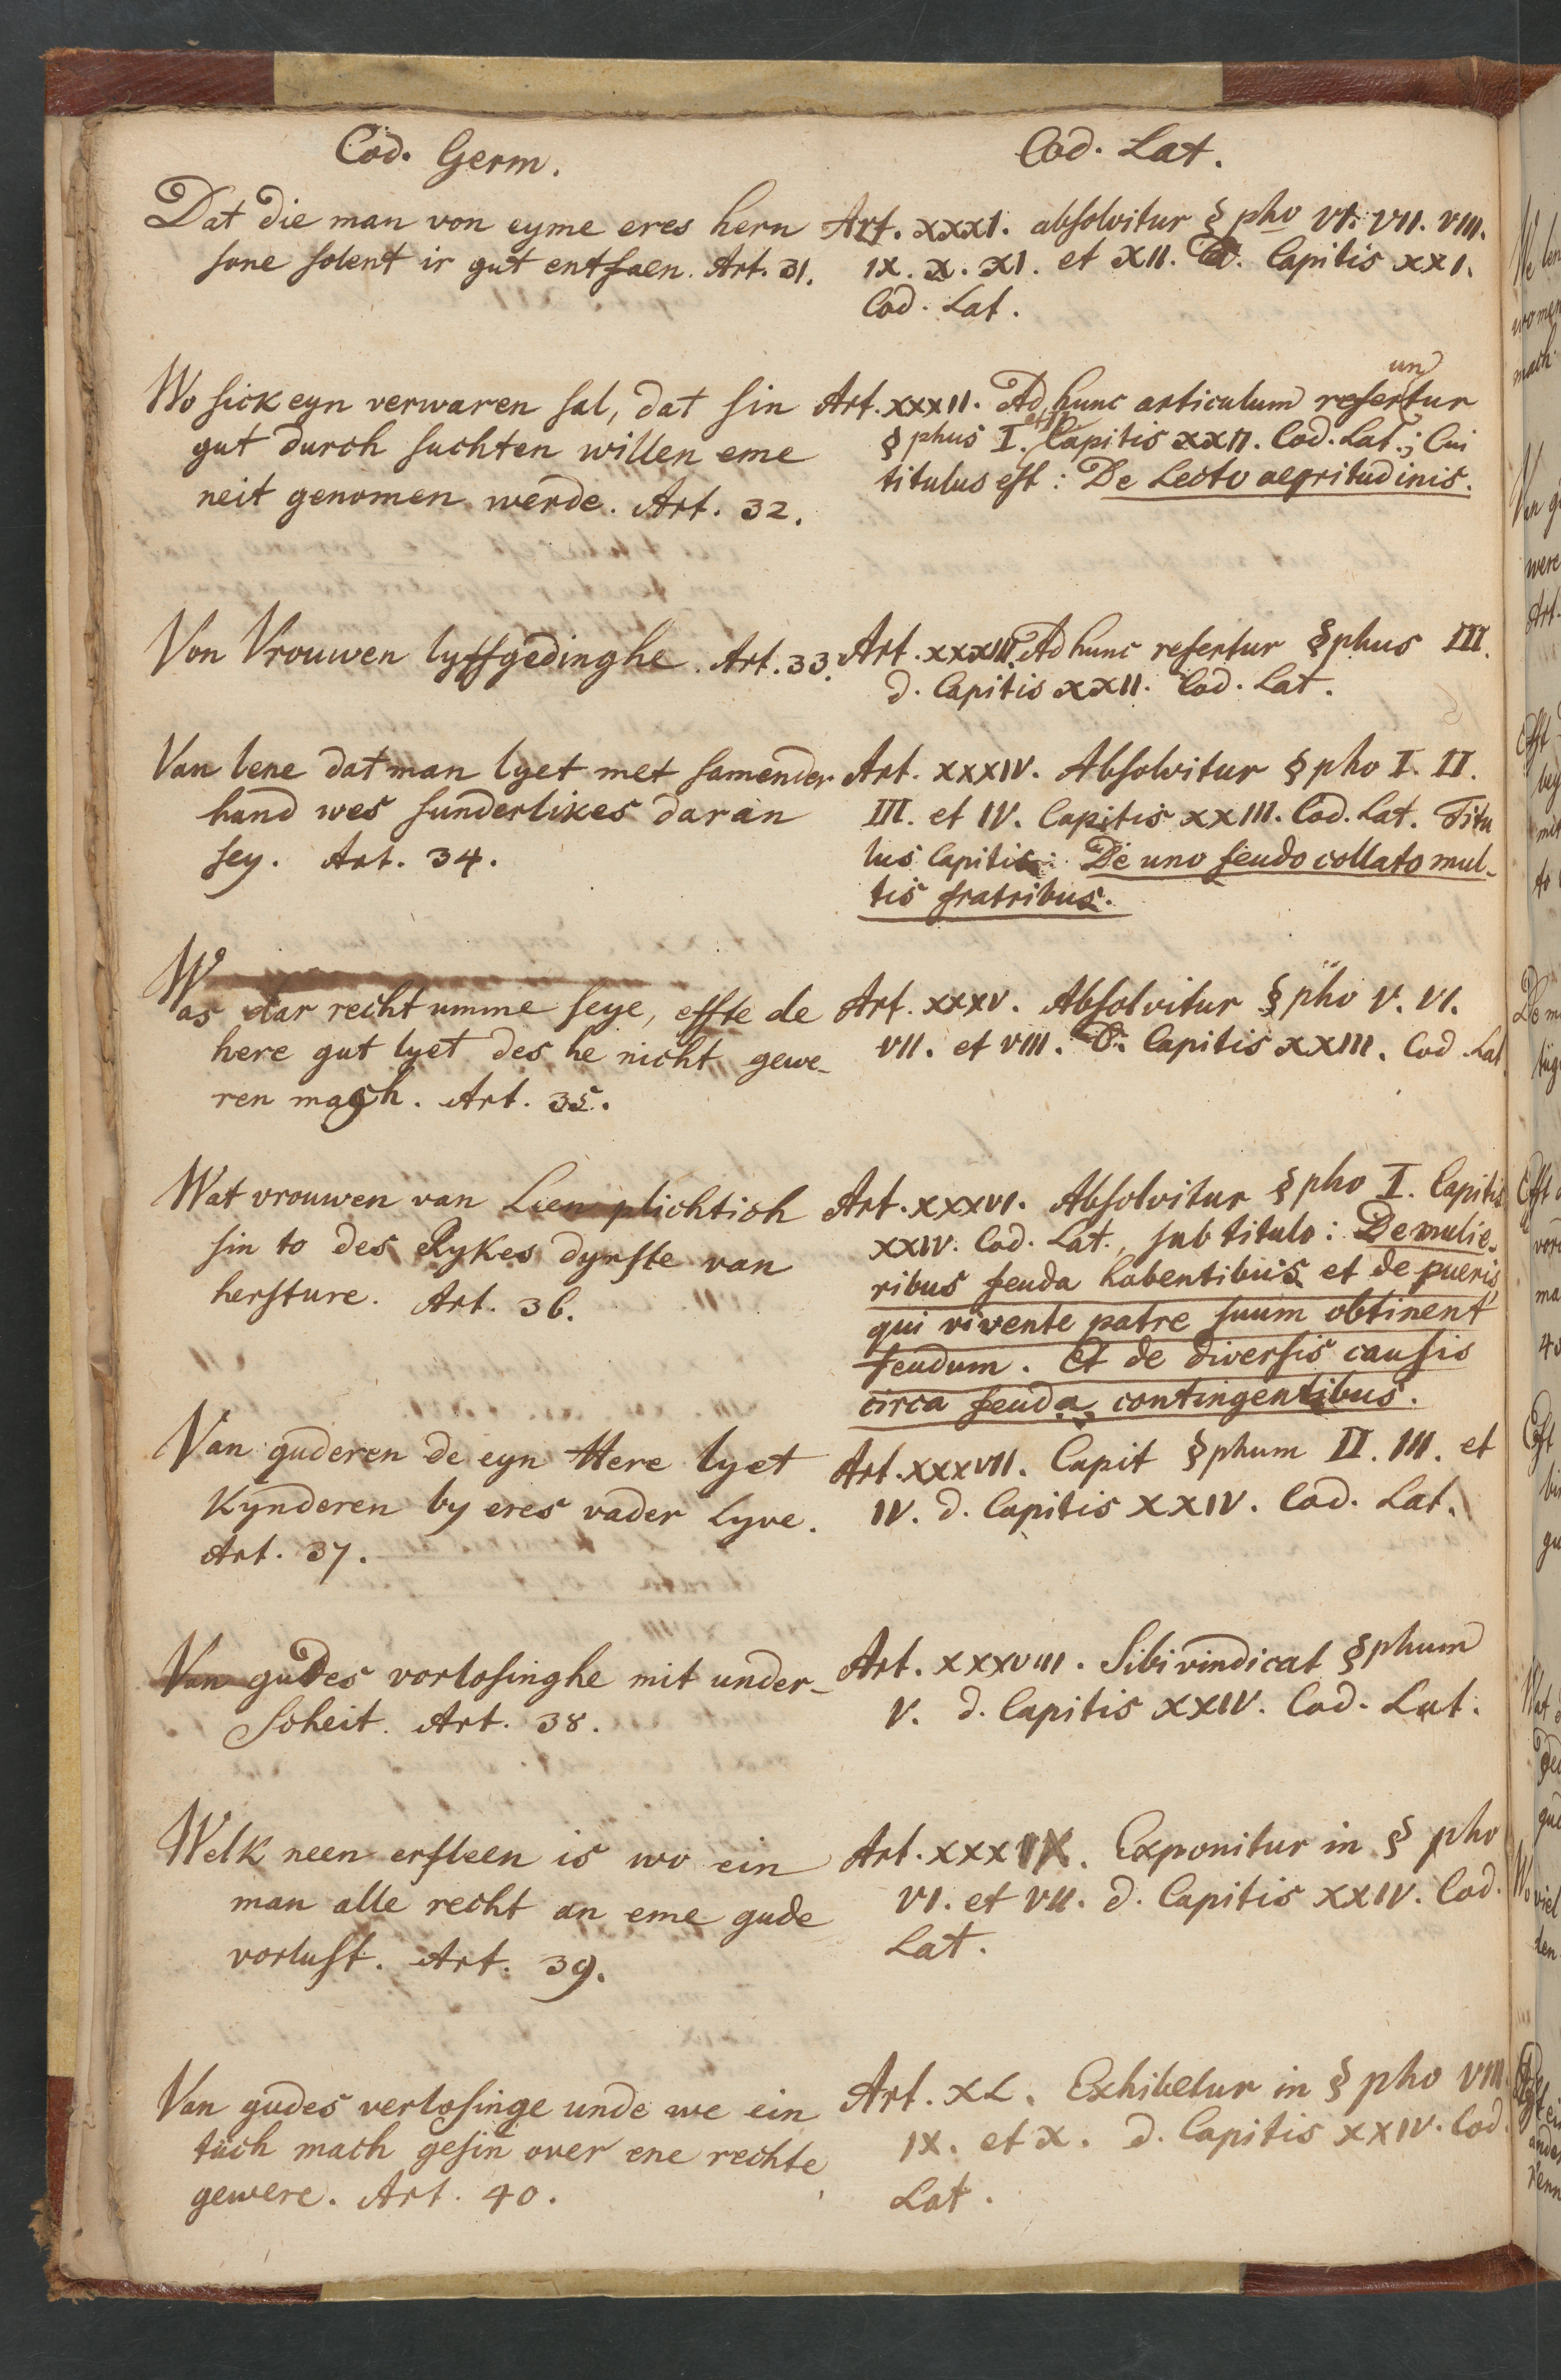 Cod. Germ.
Dat die man von eyme eres hern
sone solent ir gut entfaen. Art. 31.
Wo sick eyn verwaren sal, dat sin
gut durch suchten willen eme
neit genomen werde. Art. 32.
Von Vrouwen lyffgedinghe. Art. 33.
Van lene dat man lyet met samender
hand wes sunderlikes daran
sey. Art. 34.
Was dar recht umme seye, effte de
here gut lyet des he nicht gewe-
ren magh. Art. 35.
Wat vrouwen van Lien plichtich
sin to des Rykes dynste van
hersture. Art. 36.
Van guderen de eyn Here lyet
Kynderen by eres vader Lyve.
Art. 37.
Van gudes vorlosinghe mit under-
scheit. Art. 38.
Welk neen ersteen is wo ein
man alle recht an eme gude
vorlust. Art. 39.
Van gudes verlosinge unde we ein
tuch mach gesin over ene rechte
gewere. Art. 40.
Cod. Lat.
Art. XXXI. absolvitur §pho VI. VII. VIII.
IX. X. XI. et XII. d. Capitis XXI.
Cod. Lat.
Art. XXXII. Ad hunc articulum referuntur
§phus I. et II. Capitis XXII. Cod. Lat.; Cui
titulus est: De Lecto aegritudinis.
Art. XXXIII. Ad hunc refertur §phus III.
d. Capitis XXII. Cod. Lat.
Art. XXXIV. Absolvitur §pho I. II.
III. et IV. Capitis XXIII. Cod. Lat. Titu
lus Capitis: De uno feudo collato mul-
tis fratribus.
Art. XXXV. Absolvitur §pho V. VI.
VII. et VIII. d. Capitis XXIII. Cod. Lat
Art. XXXVI. Absolvitur §pho I. Capitis
XXIV. Cod. Lat., sub titulo: De mulie-
ribus feuda habentibus et de pueris,
qui vivente patre suum obtinent
feudum. Et de diversis causis
circa feuda contingentibus.
Art. XXXVII. Capit §phum II. III. et
IV. d. Capitis XXIV. Cod. Lat.
Art. XXXVIII. Sibi vindicat §phum
V. d. Capitis XXIV. Cod. Lat.
Art. XXXIX. Exponitur in §pho
VI. et VII. d. Capitis XXIV. Cod.
Lat.
Art. XL. Exhibetur in §pho VIII.
IX. et X. d. Capitis XXIV. Cod.
Lat.